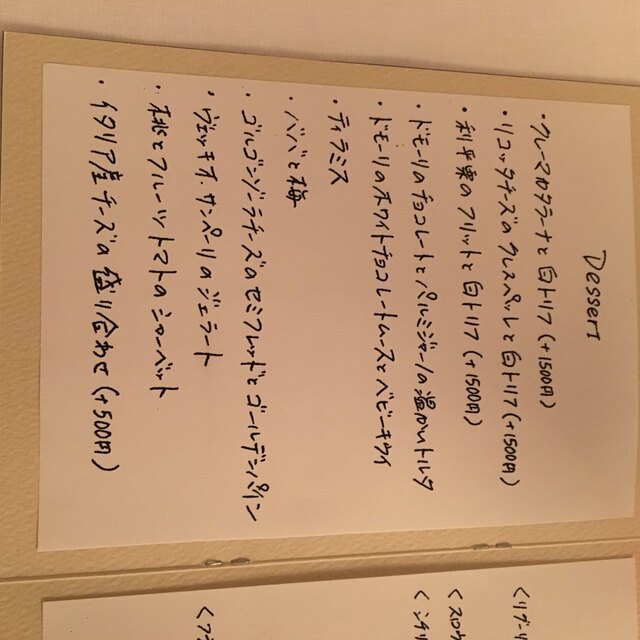 Dessert
・クレーマカタラーナと白トリフ (+1500円)
・リコッタチーズのクレスペッレと白トリフ (+1500円)
・利平栗のフリットと白トリフ (+1500円)
・ドモーリのチョコレートとパルミジャーノの温かいトルタ
・ドモーリのホワイトチョコレートムースとベビーキウイ
・ティラミス
・ババと梅
・ゴルゴンゾーラチーズのセミフレッドとゴールデンパイン
・ヴェッキオ・サンペーリのジェラート
・桃とフルーツトマトのシャーベット
・イタリア産チーズの盛り合わせ (+500円)
<リグーリ
<スロヴ